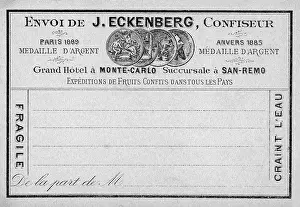 ENVOI DE J. ECKENBERG, CONFISEUR
PARIS 1889
MEDAILLE D'ARGENT
ANVERS 1885
MÉDAILLE D'ARGENT
Grand Hôtel à MONTE-CARLO Succursale à SAN-REMO
EXPÉDITIONS DE FRUITS CONFITS DANS TOUS LES PAYS
FRAGILE
CRAINT L'EAU
De la part de M